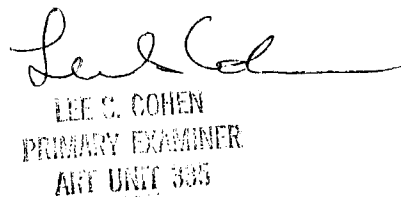 Lee Cohen
LEE C. COHEN
PRIMARY EXAMINER
ART UNIT 335